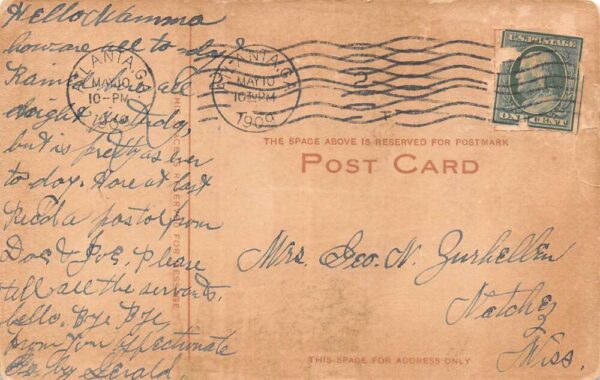 Hello Mamma
how are all to-day
Rained here all
night & Sunday,
but is pretty as ever
to day. Rose at last
Rec'd a postal from
Dog & Joe. Please
tell all the servants,
hello. Bye Bye,
from Your affectionate
Ba by Gerald.
ATLANTA, GA.
MAY 10
10-PM
1909
ATLANTA, GA.
MAY 10
1909
U.S. POSTAGE
ONE CENT
THE SPACE ABOVE IS RESERVED FOR POSTMARK
POST CARD
Mrs. Geo. N. Zurhellen
Natchez
Miss.
THIS SPACE FOR ADDRESS ONLY